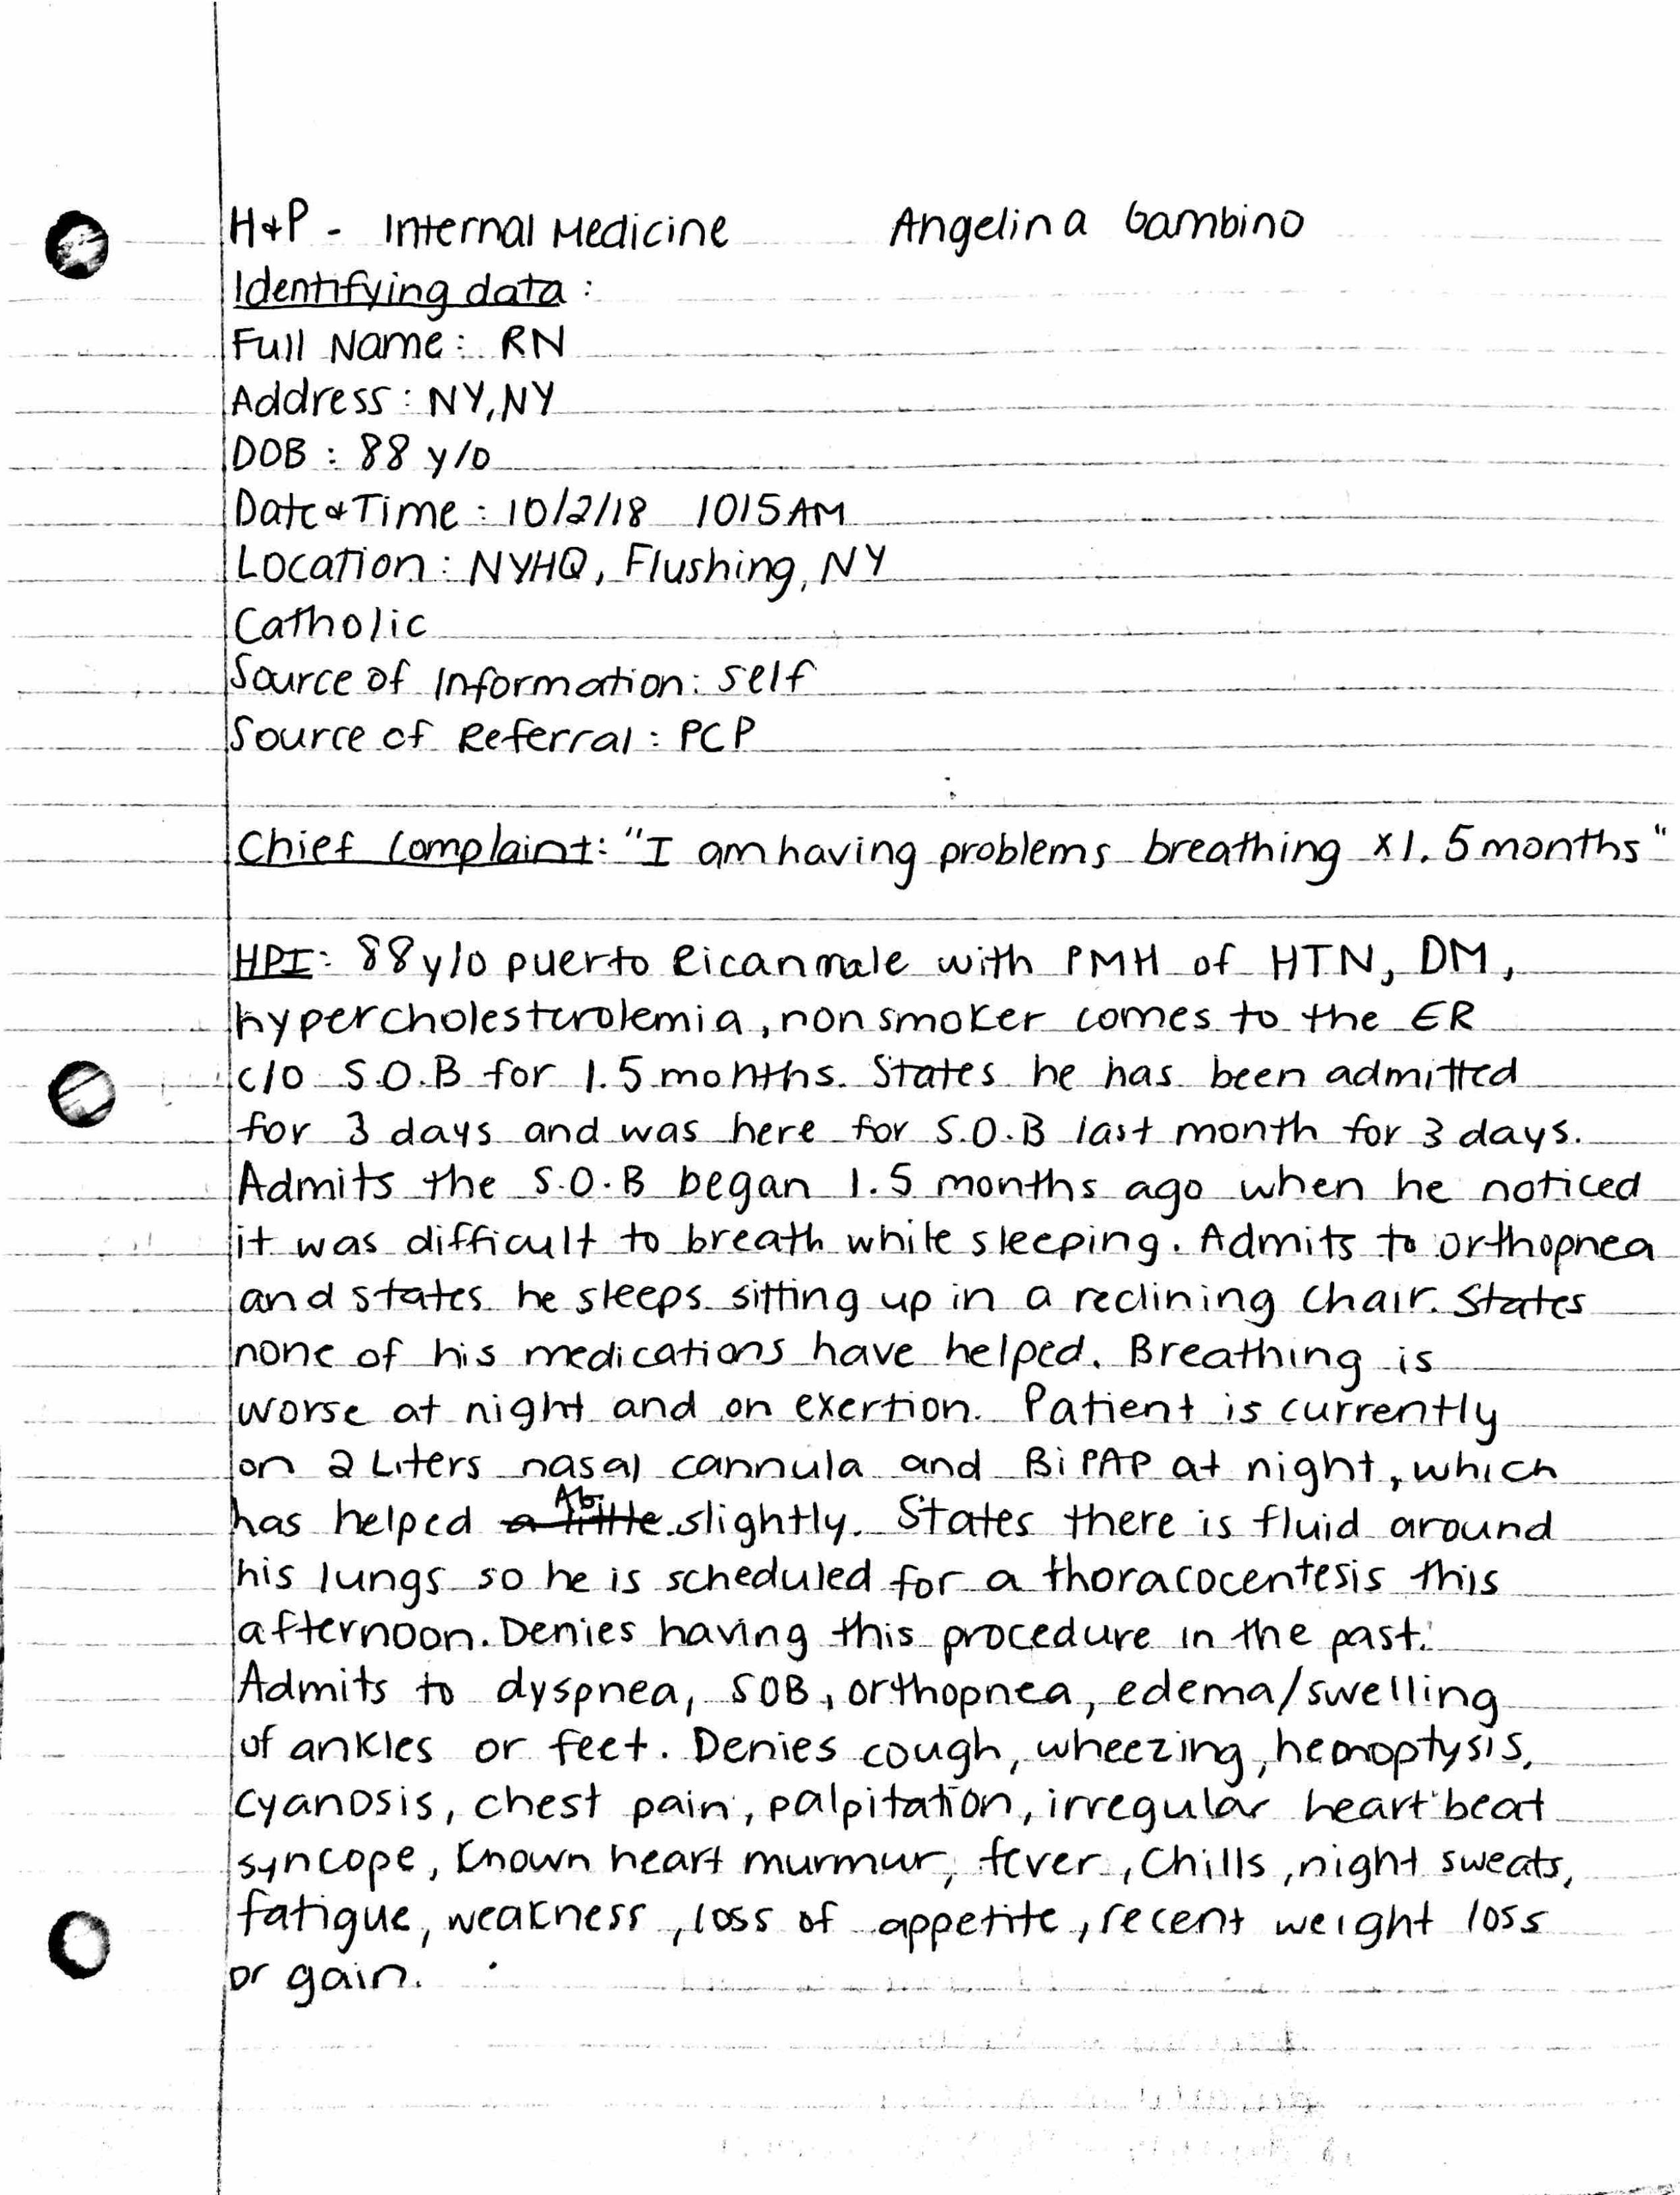 H+P - Internal Medicine Angelina Gambino
Identifying data :
Full Name : RN
Address : NY, NY
DOB : 88 y/o
Date + Time : 10/2/18 1015 AM
Location : NYHQ, Flushing, NY
Catholic
Source of Information : self
Source of Referral : PCP
Chief Complaint: "I am having problems breathing x1.5 months"
HPI: 88 y/o puerto Rican male with PMH of HTN, DM,
hypercholesterolemia, non smoker comes to the ER
c/o S.O.B for 1.5 months. States he has been admitted
for 3 days and was here for S.O.B last month for 3 days.
Admits the S.O.B began 1.5 months ago when he noticed
it was difficult to breath while sleeping. Admits to orthopnea
and states he sleeps sitting up in a reclining chair. States
none of his medications have helped. Breathing is
worse at night and on exertion. Patient is currently
on 2 Liters nasal cannula and BiPAP at night, which
has helped a little AG slightly. States there is fluid around
his lungs so he is scheduled for a thoracocentesis this
afternoon. Denies having this procedure in the past.
Admits to dyspnea, SOB, orthopnea, edema/swelling
of ankles or feet. Denies cough, wheezing, hemoptysis,
cyanosis, chest pain, palpitation, irregular heartbeat
syncope, known heart murmur, fever, chills, night sweats,
fatigue, weakness, loss of appetite, recent weight loss
or gain.